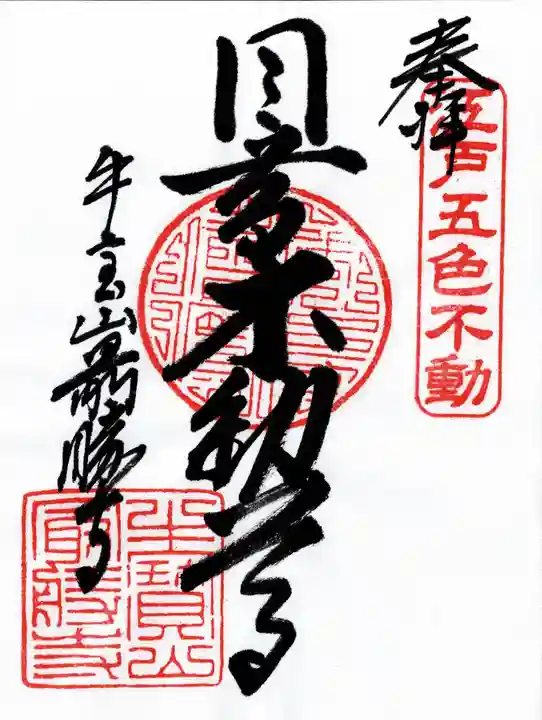 奉拝
江戸五色不動
目黄不動尊
牛宝山最勝寺
牛寳山
最勝寺